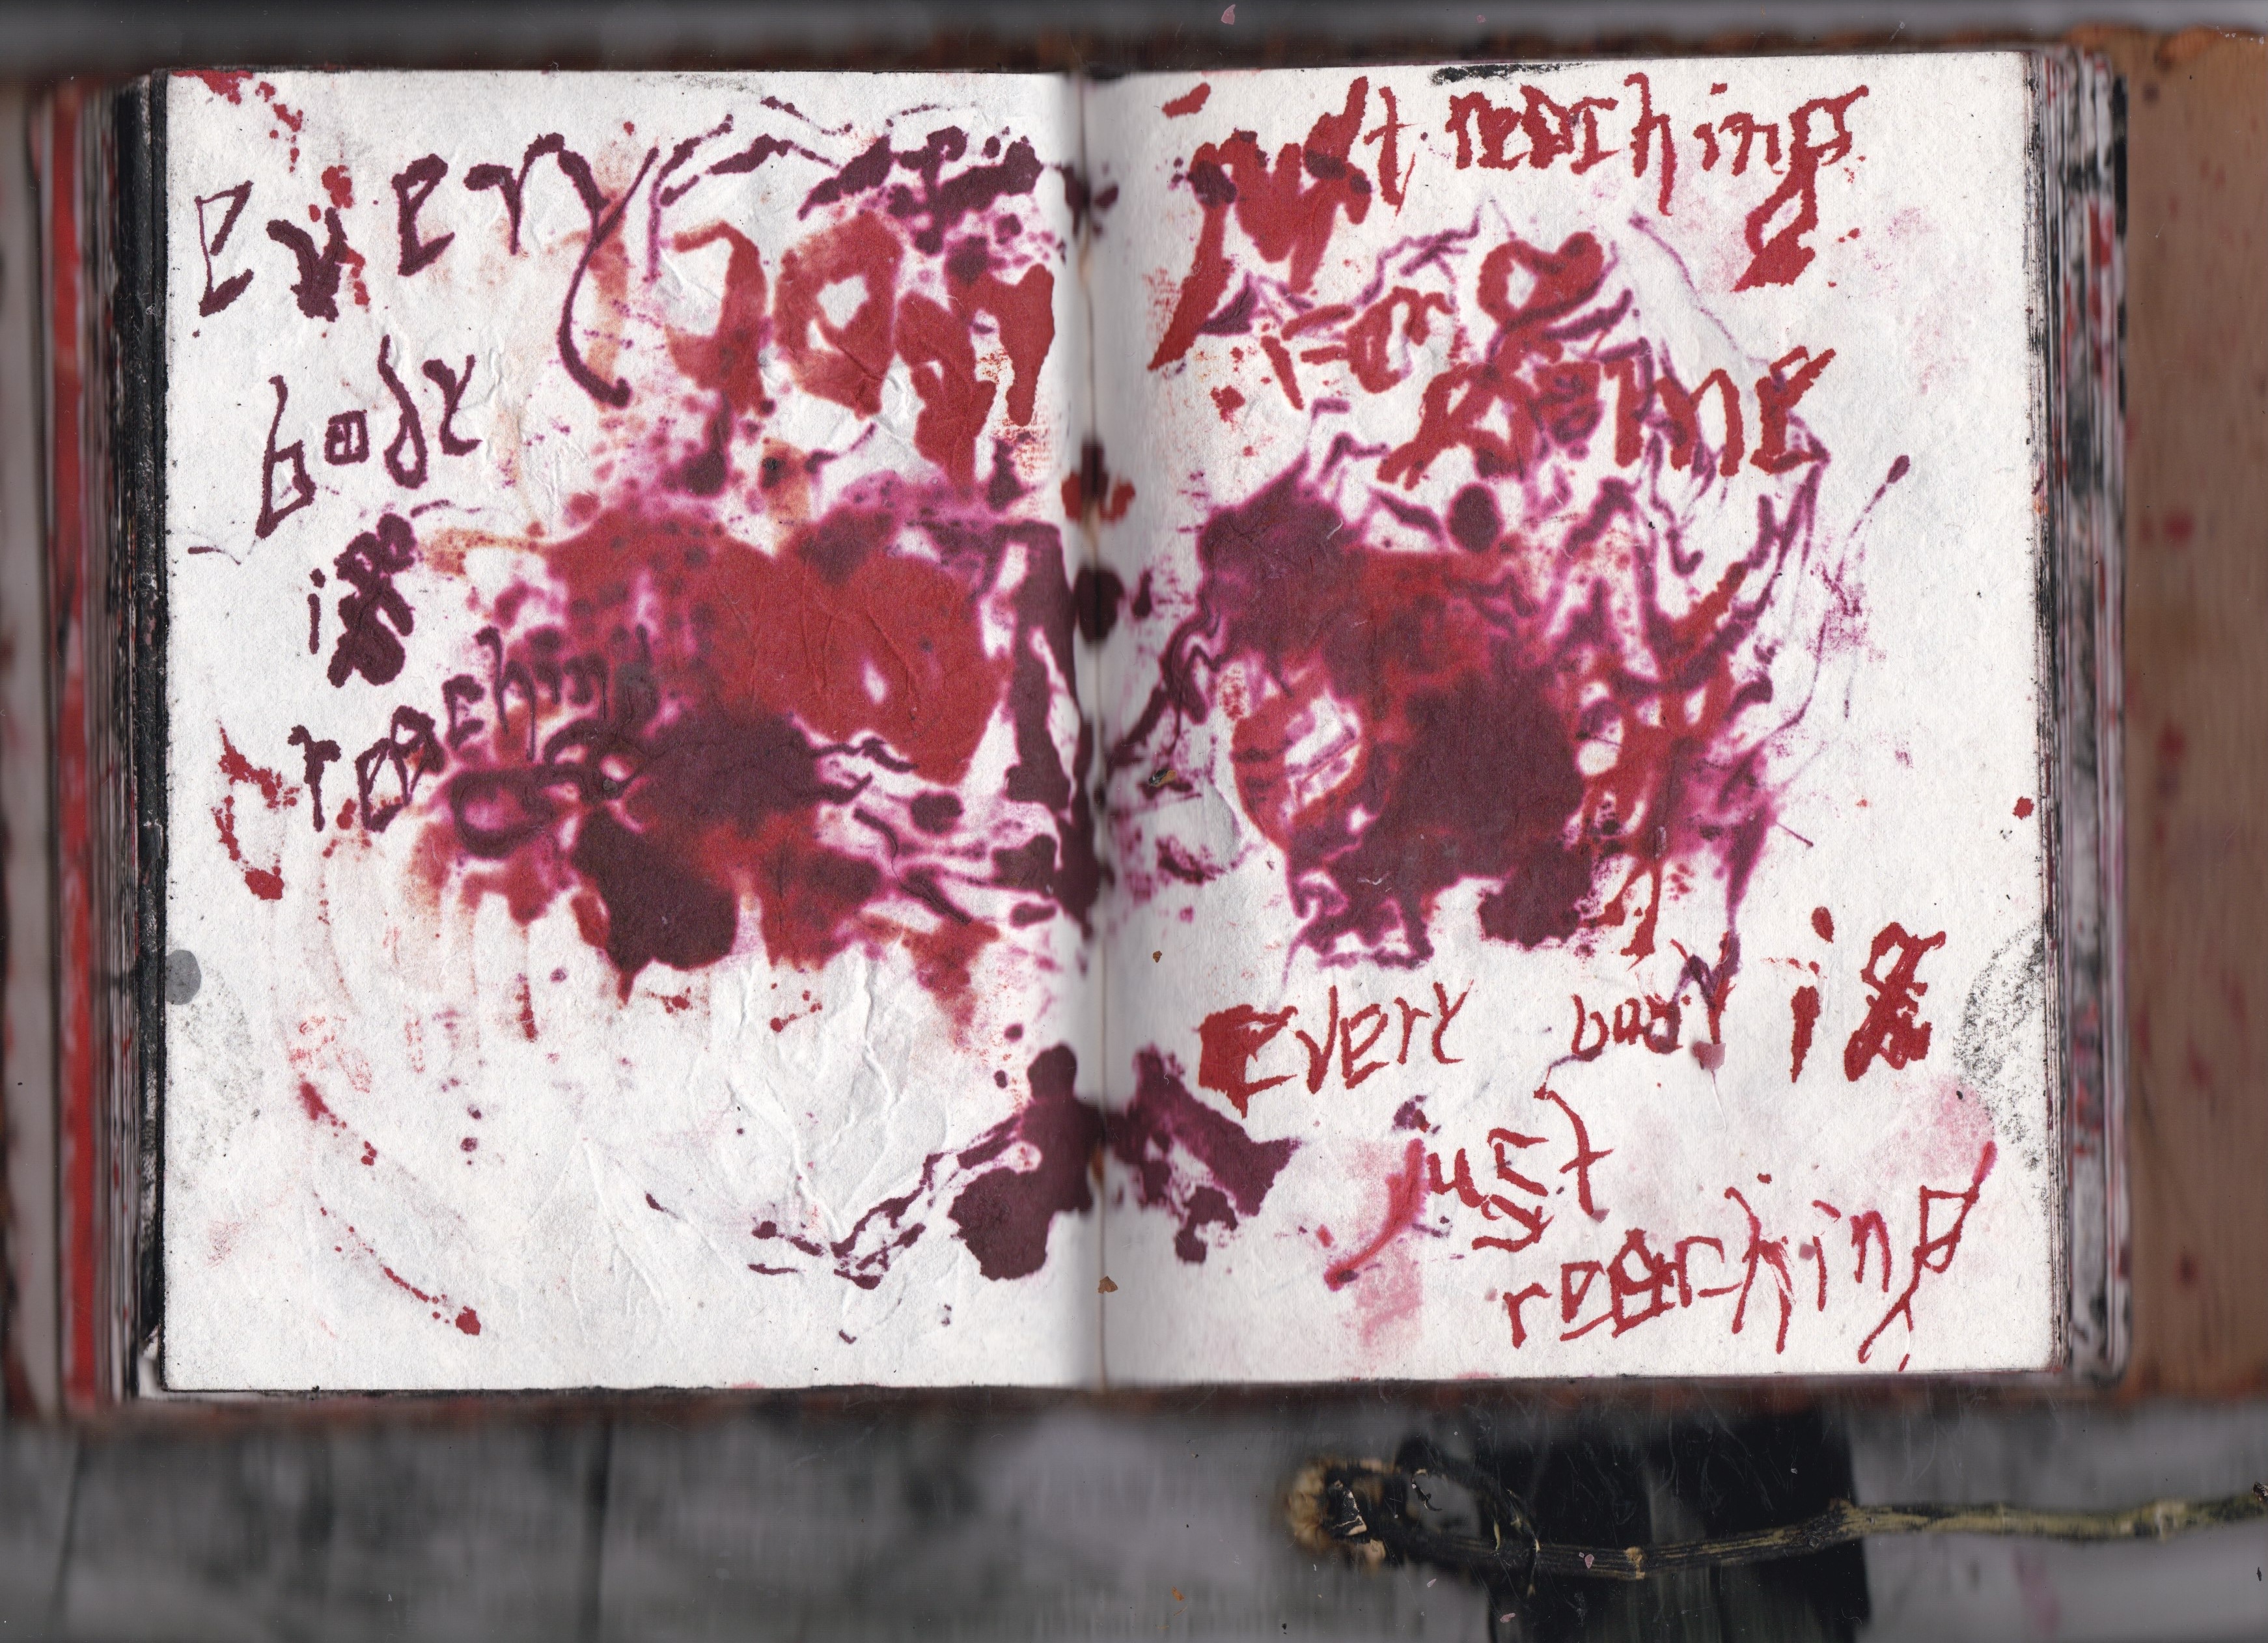 every
body
is
reaching
just reaching
Every body is
just
reaching